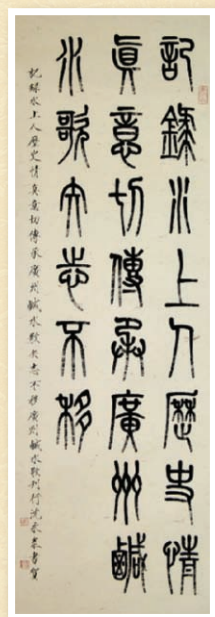 記錄水上人歷史情
眞意切傳承廣州鹹
水歌矢志不移
記錄水上人歷史情真意切傳承廣州鹹水歌矢志不移廣州鹹水歌刊行沈永泰書賀